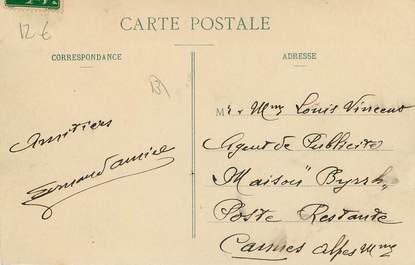 12-€
CARTE POSTALE
CORRESPONDANCE
ADRESSE
Mr & Mme Louis Vincent
Agent de Publicité
Maison "Byrrh"
Poste Restante
Cannes Alpes Mmes
Amitiés